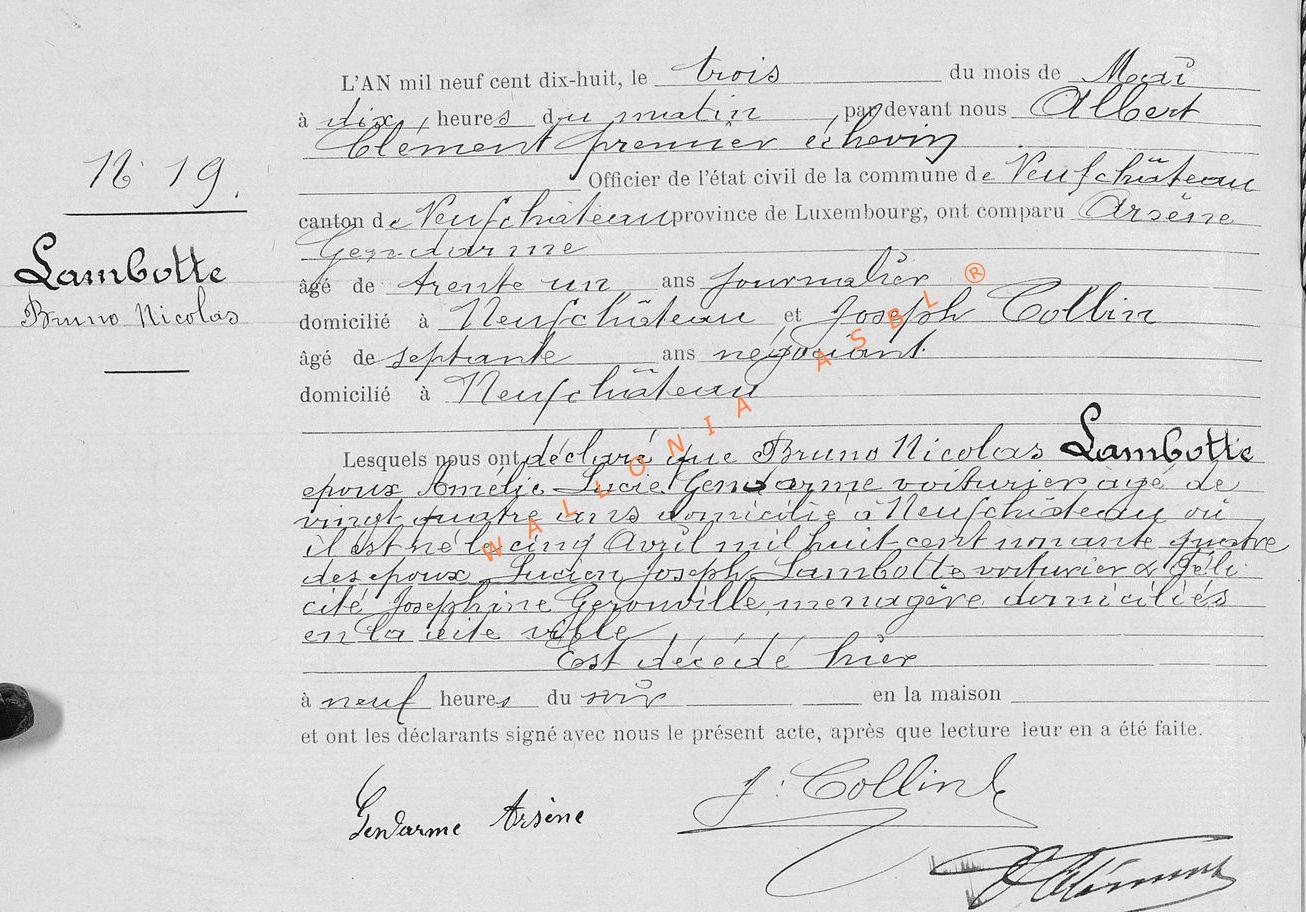 L'AN mil neuf cent dix-huit, le trois du mois de Mai
à dix, heures du matin, par devant nous Albert
Clément premier échevin
N° 19.
Officier de l'état civil de la commune de Neufchâteau
canton de Neufchâteau province de Luxembourg, ont comparu Arsène
Gendarme
Lambotte
Bruno Nicolas
âgé de trente un ans journalier
domicilié à Neufchâteau et Joseph Collin
âgé de septante ans négociant
domicilié à Neufchâteau
WALLONIA ASBL ®
Lesquels nous ont déclaré que Bruno Nicolas Lambotte
epoux Amélie Lucie Gendarme voiturier agé de
vingt quatre ans domicilié à Neufchâteau où
il est né le cinq Avril mil huit cent nonante quatre
des epoux Lucien Joseph Lambotte voiturier & Féli
cité Josephine Gerouville menagère domiciliés
en la dite ville
Est décédé hier
à neuf heures du soir en la maison
et ont les déclarants signé avec nous le présent acte, après que lecture leur en a été faite.
Gendarme Arsène
J. Collin
A Clément